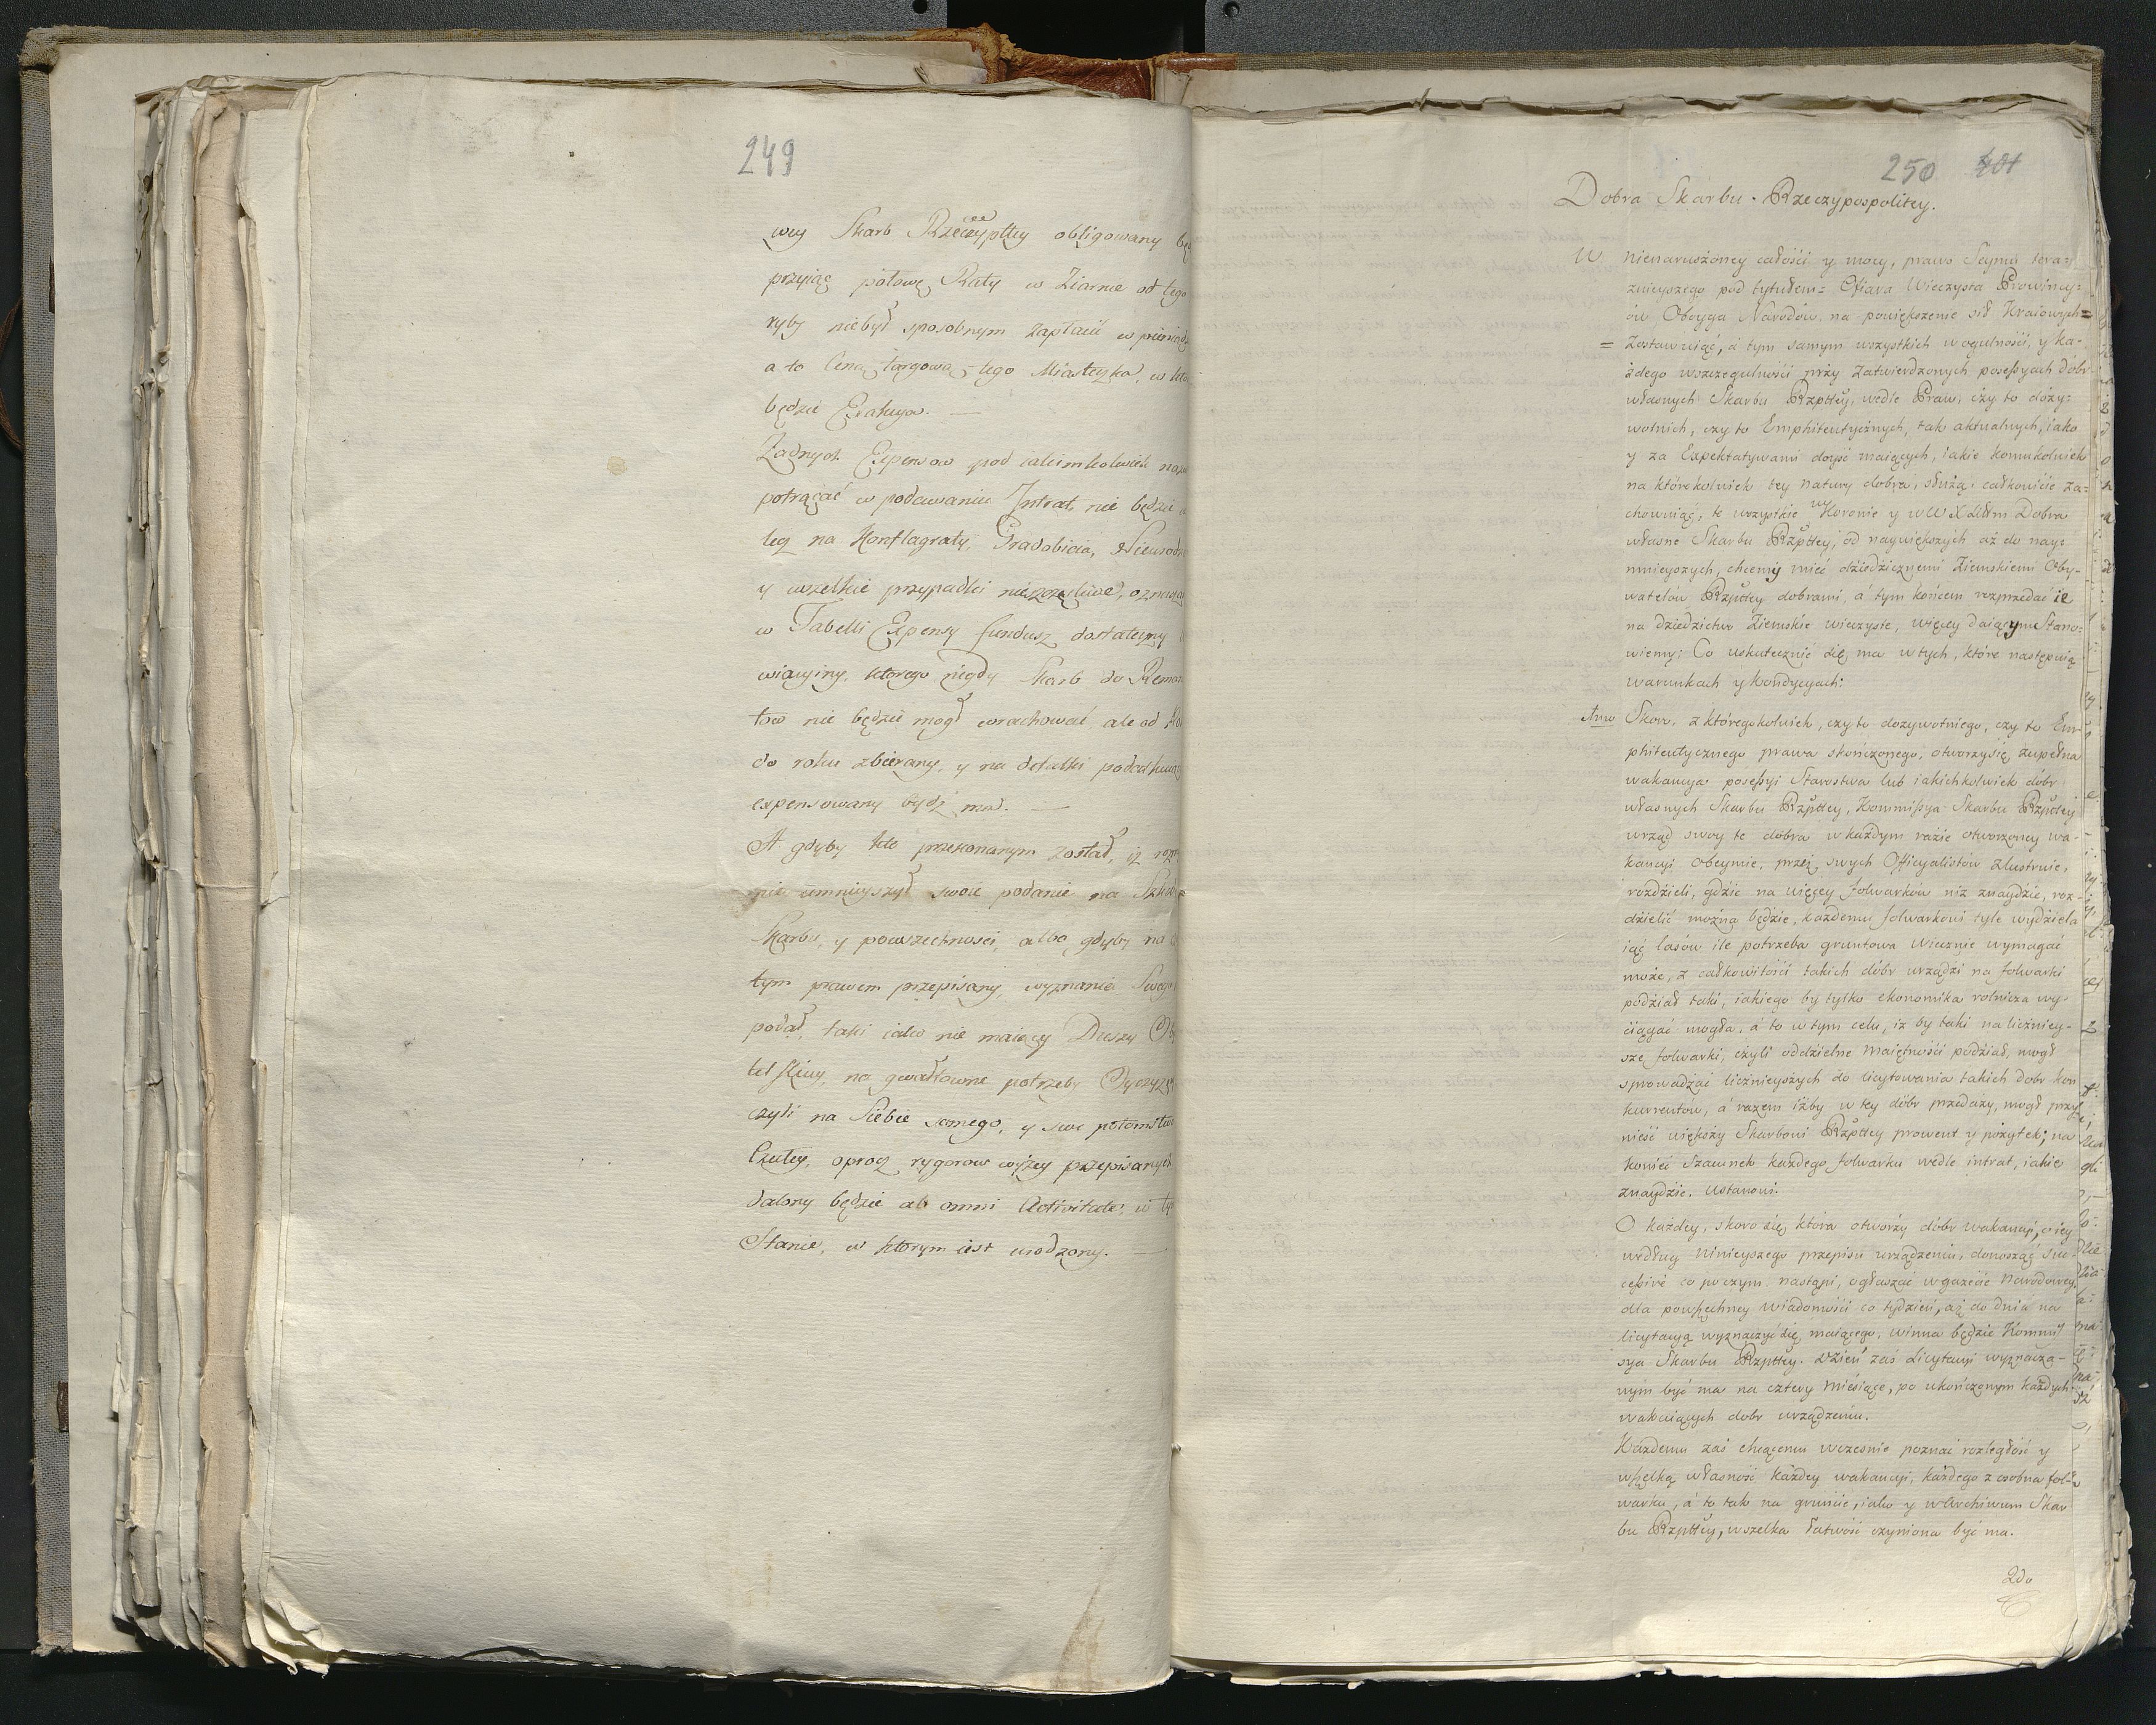 249
wey Skarb Rzeczypltey obligowany
przyiąć połowę Raty w Ziarnie od tego
ryby niebył sposobnym zapłacić w pieniąd
a to Ceną targową tego Miasteczka, w
będzie
Żadnych Expensow pod iakimkolwiek
potrącać w podawaniu Intrat, nie będzie
leż na Konflagraty, Gradobicia,
y wszelkie przypadki nieszczęśliwe,
w Tabelli Expensy fundusz dostateczny
ktorego nigdy Skarb do
tow nie będzie mogł wrachować ale od
do roku zbierany, y na dalsze
expensowany bydź ma.
A gdyby kto przekonanym został, iż
mie umnieyszył swoie podanie na
Skarbu, y powszechnosci, albo gdyby na
tym prawem przepisany, wyznania Swego
podał, taki iako nie maiący Duszy
na gwałtowne potrzeby
czyli na Siebie samego, y swe potomstwo
Czułey, oprocz rygorow wyżey przepisanych
dalony będzie ab omni Activitate, w
Stanie, w ktorym iest urodzony.
250 401
Dobra Skarbu Rzeczypospolitey.
W nienaruszoney całości y mocy, prawo Seymu tera=
znieyszego pod tytułem= Ofiara Wieczysta Prowincy=
ów Oboyga Narodów na powiększenie sił Kraiowych=
= Zostawuiąc, á tym samym wszystkich w ogulności, y ka-
żdego wszczegulności przy Zatwierdzonych possessyach dóbr
własnych Skarbu Rzpltey, wedle Praw, czy to doży-
wotnich, czy to Emphiteutycznych, tak aktualnych, iako
y za Expektatywami doyść maiących, iakie komukolwiek
na którekolwiek tey natury dobra, służą, całkowicie za=
chowuiąc, te wszystkie w Koronie y w W X Littm Dobra
własne Skarbu Rzpltey, od naywiększych aż do nay=
mnieyszych, chcemy mieć dziedzicznemi Ziemskiemi Oby-
watelów Rzpltey dobrami, á tym końcem rozprzedać ie
na dziedzictwo Ziemskie wieczyste, więcey daiącemu Stano=
wiemy: Co uskutecznić się ma w tych, które następuią
warunkach y kondycyach:
1mo Skoro, z któregokolwiek, czy to dożywotniego, czy to Em-
phiteutycznego prawa skończonego, otworzy się zupełna
wakancya possessyi Starostwa lub iakichkolwiek dóbr
własnych Skarbu Rzpltey, Kommissya Skarbu Rzpltey
urząd swoy te dobra w każdym razie otworzoney wa-
kancyi obeymie, przez swych Officyalistów zlustruie,
rozdzieli, gdzie na więcey folwarków niż znaydzie, roz-
dzielić można będzie, każdemu folwarkowi tyle wydziela
iąc lasów ile potrzeba gruntowa wiecznie wymagać
może, z całkowitości takich dóbr urządzi na folwarki
podział taki, iakiego by tylko ekonomika rolnicza wy-
ciągać mogła, á to w tym celu, iż by taki na licznieysze
sze folwarki, czyli oddzielne maiętności podział, mogł
sprowadzać licznieyszych do licytowania takich dobr kon
kurrentów, á razem iżby w tey dóbr przedaży, mogł przy-
nieść większy Skarbowi Rzpltey prowent y pożytek; na
koniec Szacunek każdego folwarku wedle intrat, iakie
znaydzie, ustanowi.
O każdey, skoro się która otworzy dóbr wakancyi, o iey
według ninieyszego przepisu urządzeniu, donosząc suc-
cessive co poczym nastąpi, ogłaszać w gazecie Narodowey,
dla powszechney wiadomości co tydzień, aż do dnia na
licytacyą wyznaczyć się maiącego, winna będzie Kommis
sya Skarbu Rzpltey. Dzień zaś Licytacyi wyznaczo-
nym być ma na cztery miesiące, po ukończonym każdych
wakuiących dobr urządzeniu.
Każdemu zaś chcącemu wcześnie poznać rozległość y
wszelką własność każdey wakancyi, każdego z osobna fol-
warku, á to tak na gruncie, iako y w Archiwum Skar
bu Rzpltey, wszelka łatwość czyniona być ma.
2do